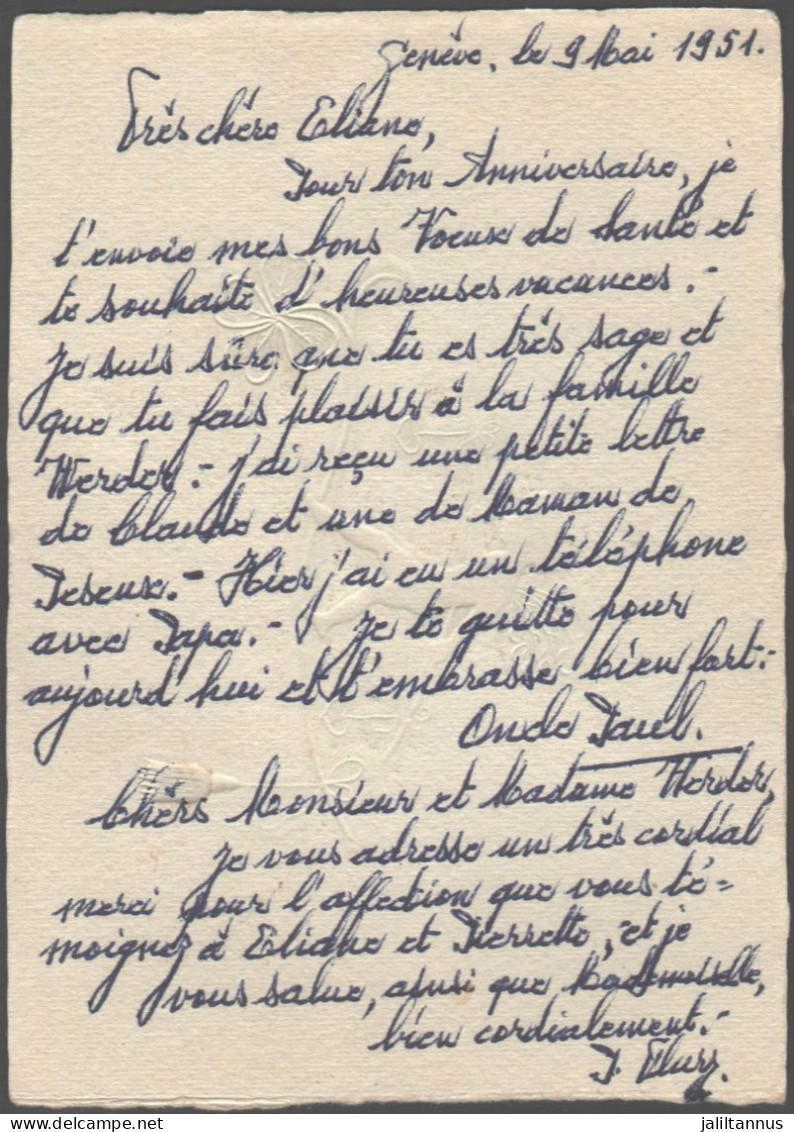 Genève, le 9 Mai 1951.
Très chère Eliane,
Pour ton Anniversaire, je
t'envoie mes bons Voeux de Santé et
te souhaite d'heureuses vacances.-
Je suis sûre que tu es très sage et
que tu fais plaisir à la famille
Werder.- J'ai reçu une petite lettre
de Claude et une de Maman de
Peseux.- Hier j'ai eu un téléphone
avec Papa.- Je te quitte pour
aujourd'hui et t'embrasse bien fort.-
Oncle Paul.
Chers Monsieur et Madame Werder,
Je vous adresse un très cordial
merci pour l'affection que vous té=
moignez à Eliane et Pierrette, et je
vous salue, ainsi que Mademoiselle,
bien cordialement.-
P.
jaliltannus